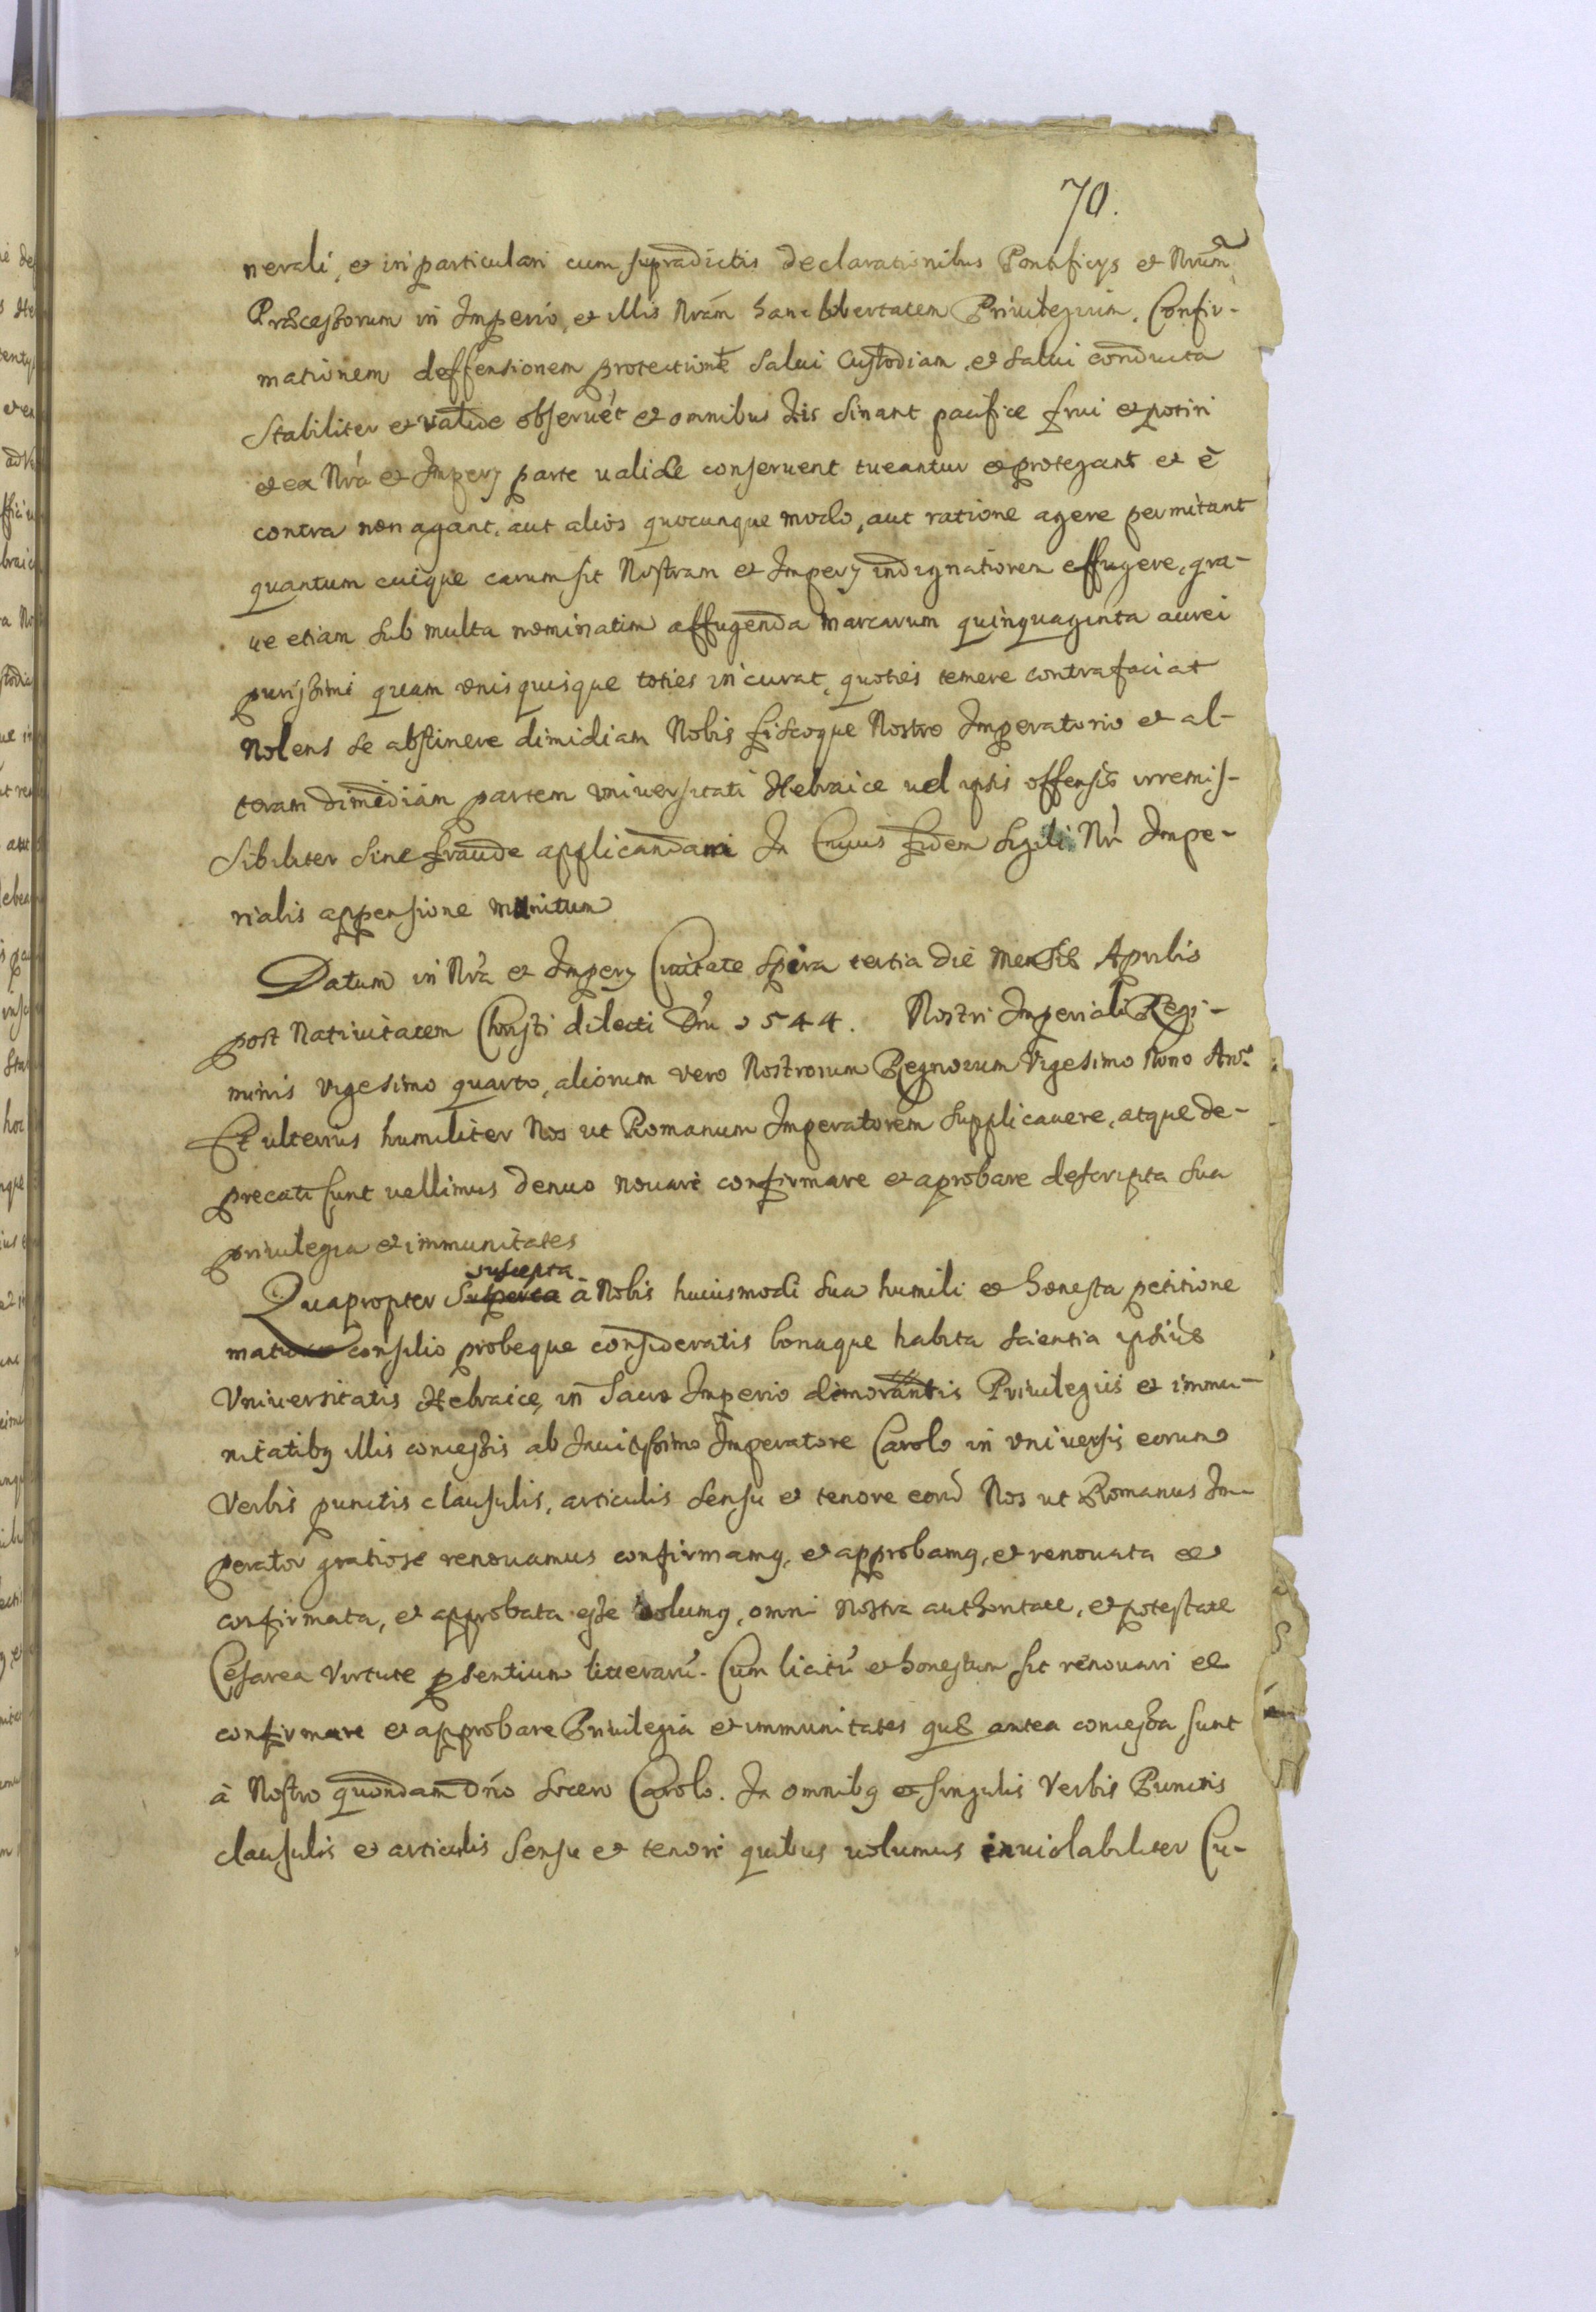 70.
nerali, et in particulari cum supradictis declarationibus Pontificys et Nrum
Prdecessorum in Imperio, et illis Nrám hanc libertatem Priuilegium. Confir-
mationem deffensionem protectione Salui Custodiam, et Salui conducta
Stabiliter et valide obseruét et omnibus his Sinant pacifice frui et potiri
et ex Nrá et Impery parte ualide conseruent tueantur et protegant et è
contra non agant, aut alios quocunque modo, aut ratione agere permitant
quantum cuique carum sit Nostram et Impery indignationem effugere, gra-
ue etiam Sub multa nominatim affugenda marcarum quinquaginta aurei
purissimi quam vnisquisque toties incurat, quoties temere contrafaciat
Nolens se abstinere dimidiam Nobis fiscoque Nostro Imperatorio et al-
teram dimediam partem vniuersitati Hebraice uel ipsis offensis irremis-
sibiliter Sine fraude applicandam In Cuius fidem Sigili Nri Impe-
rialis appensione munitum
Datum in Nrá et Impery Ciuitate Spira tertia die mensis Aprilis
post Natiuitatem Christi dilecti Dni 1544. Nostri Imperiali Regi-
minis vigesimo quarto, aliorum vero Nostrorum Regnorum Vigesimo Nono Anº
Et ulterius humiliter Nos ut Romanum Imperatorem Supplicauere, atque de-
precati sunt uellimus denuo nouare confirmare et aprobare descripta Sua
priuilegia et immunitates
suscepta
Quapropter à Nobis huiusmodi Sua humili et honesta petitione
consilio probeque consideratis bonaque habita Scientia ipsius
Vniuersitatis Hebraice in Sacro Imperio dimorantis Priuilegiis et immu-
nitatibq illis concessis ab Inuictissimo Imperatore Carolo in vniuersis eorum
Verbis punctis clausulis, articulis Sensu et tenore eorú Nos ut Romanus Im-
perator gratiose renouamus confirmamq, et approbamq, et renouata et
confirmata, et approbata esse volumq, omni Nostra authoritate, et potestate
Cesarea Virtute psentium litterarú. Cum licitú et honestum sit renouari et
confirmare et approbare Priuilegia et immunitates que antea concessa sunt
à Nostro quondam Dño Socero Carolo. In omnibq et singulis Verbis Punctis
clausulis et articulis Sensu et tenore quibus uolumus inuiolabiliter Cu-